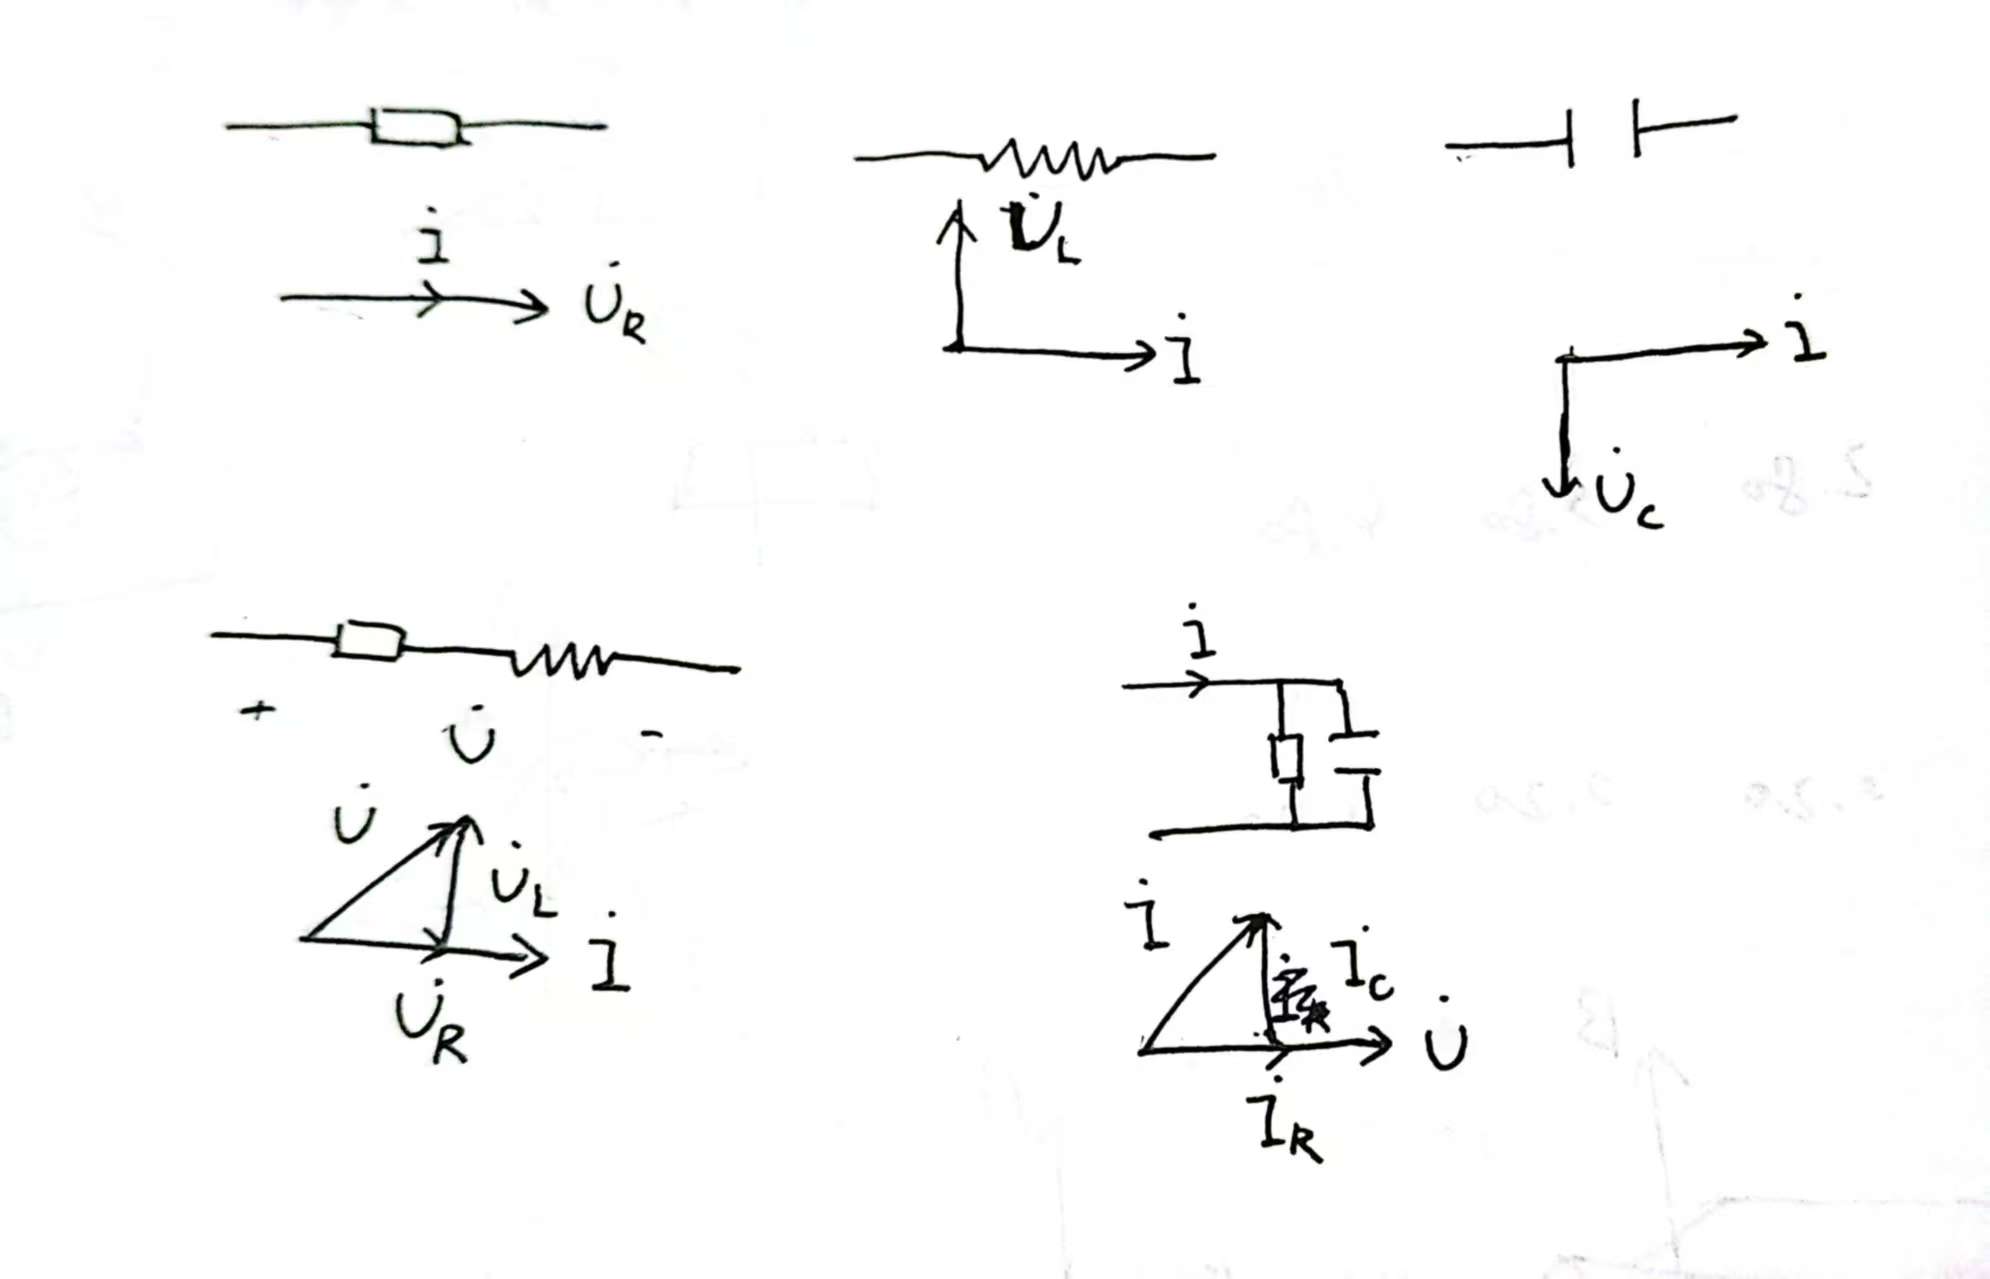 İ
U̇_R
U̇_L
İ
İ
U̇_C
+ U̇ -
U̇
U̇_L
İ
U̇_R
İ
İ
İ_C
U̇
İ_R